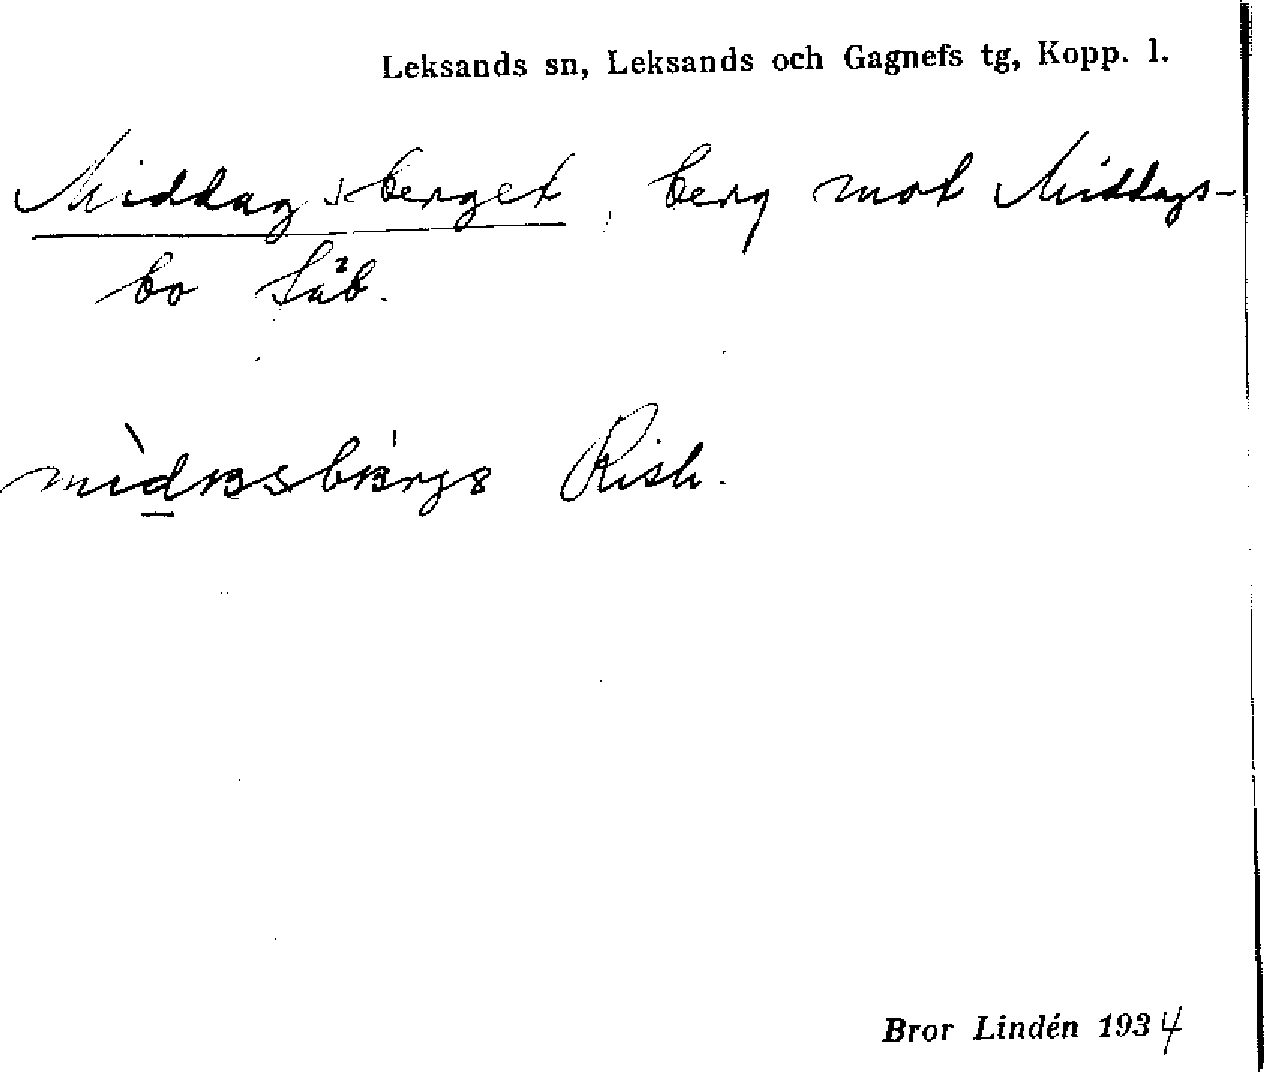 Leksands sn, Leksands och Gagnefs tg, Kopp. l.
Middagsberget, berg mot Middags-
bo fäb.
Rish.
Bror Lindén 1934